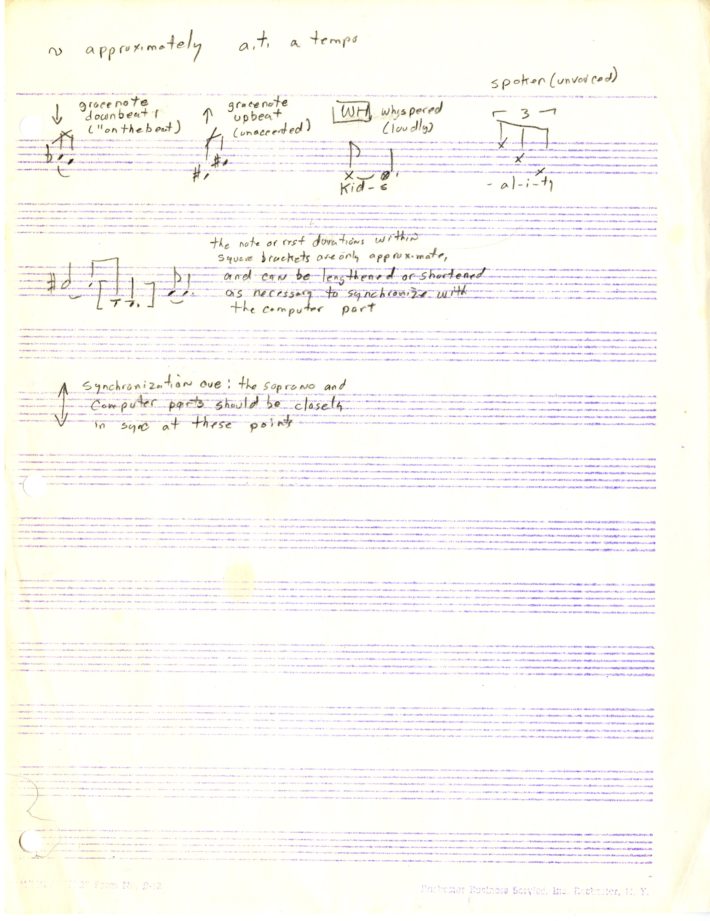 ~ approximately a.t. a tempo
spoken (unvoiced)
gracenote
downbeat
("on the beat)
gracenote
upbeat
(unaccented)
WH whyspered
(loudly)
3
Kid-s
-al-i-ty
the note or rest durations within
square brackets are only approximate,
and can be lengthened or shortened
as necessary to synchronize with
the computer part
synchronization cue: the soprano and
computer parts should be closely
in sync at these points
Form No.
Rochester Business Service, Inc. Rochester, N. Y.